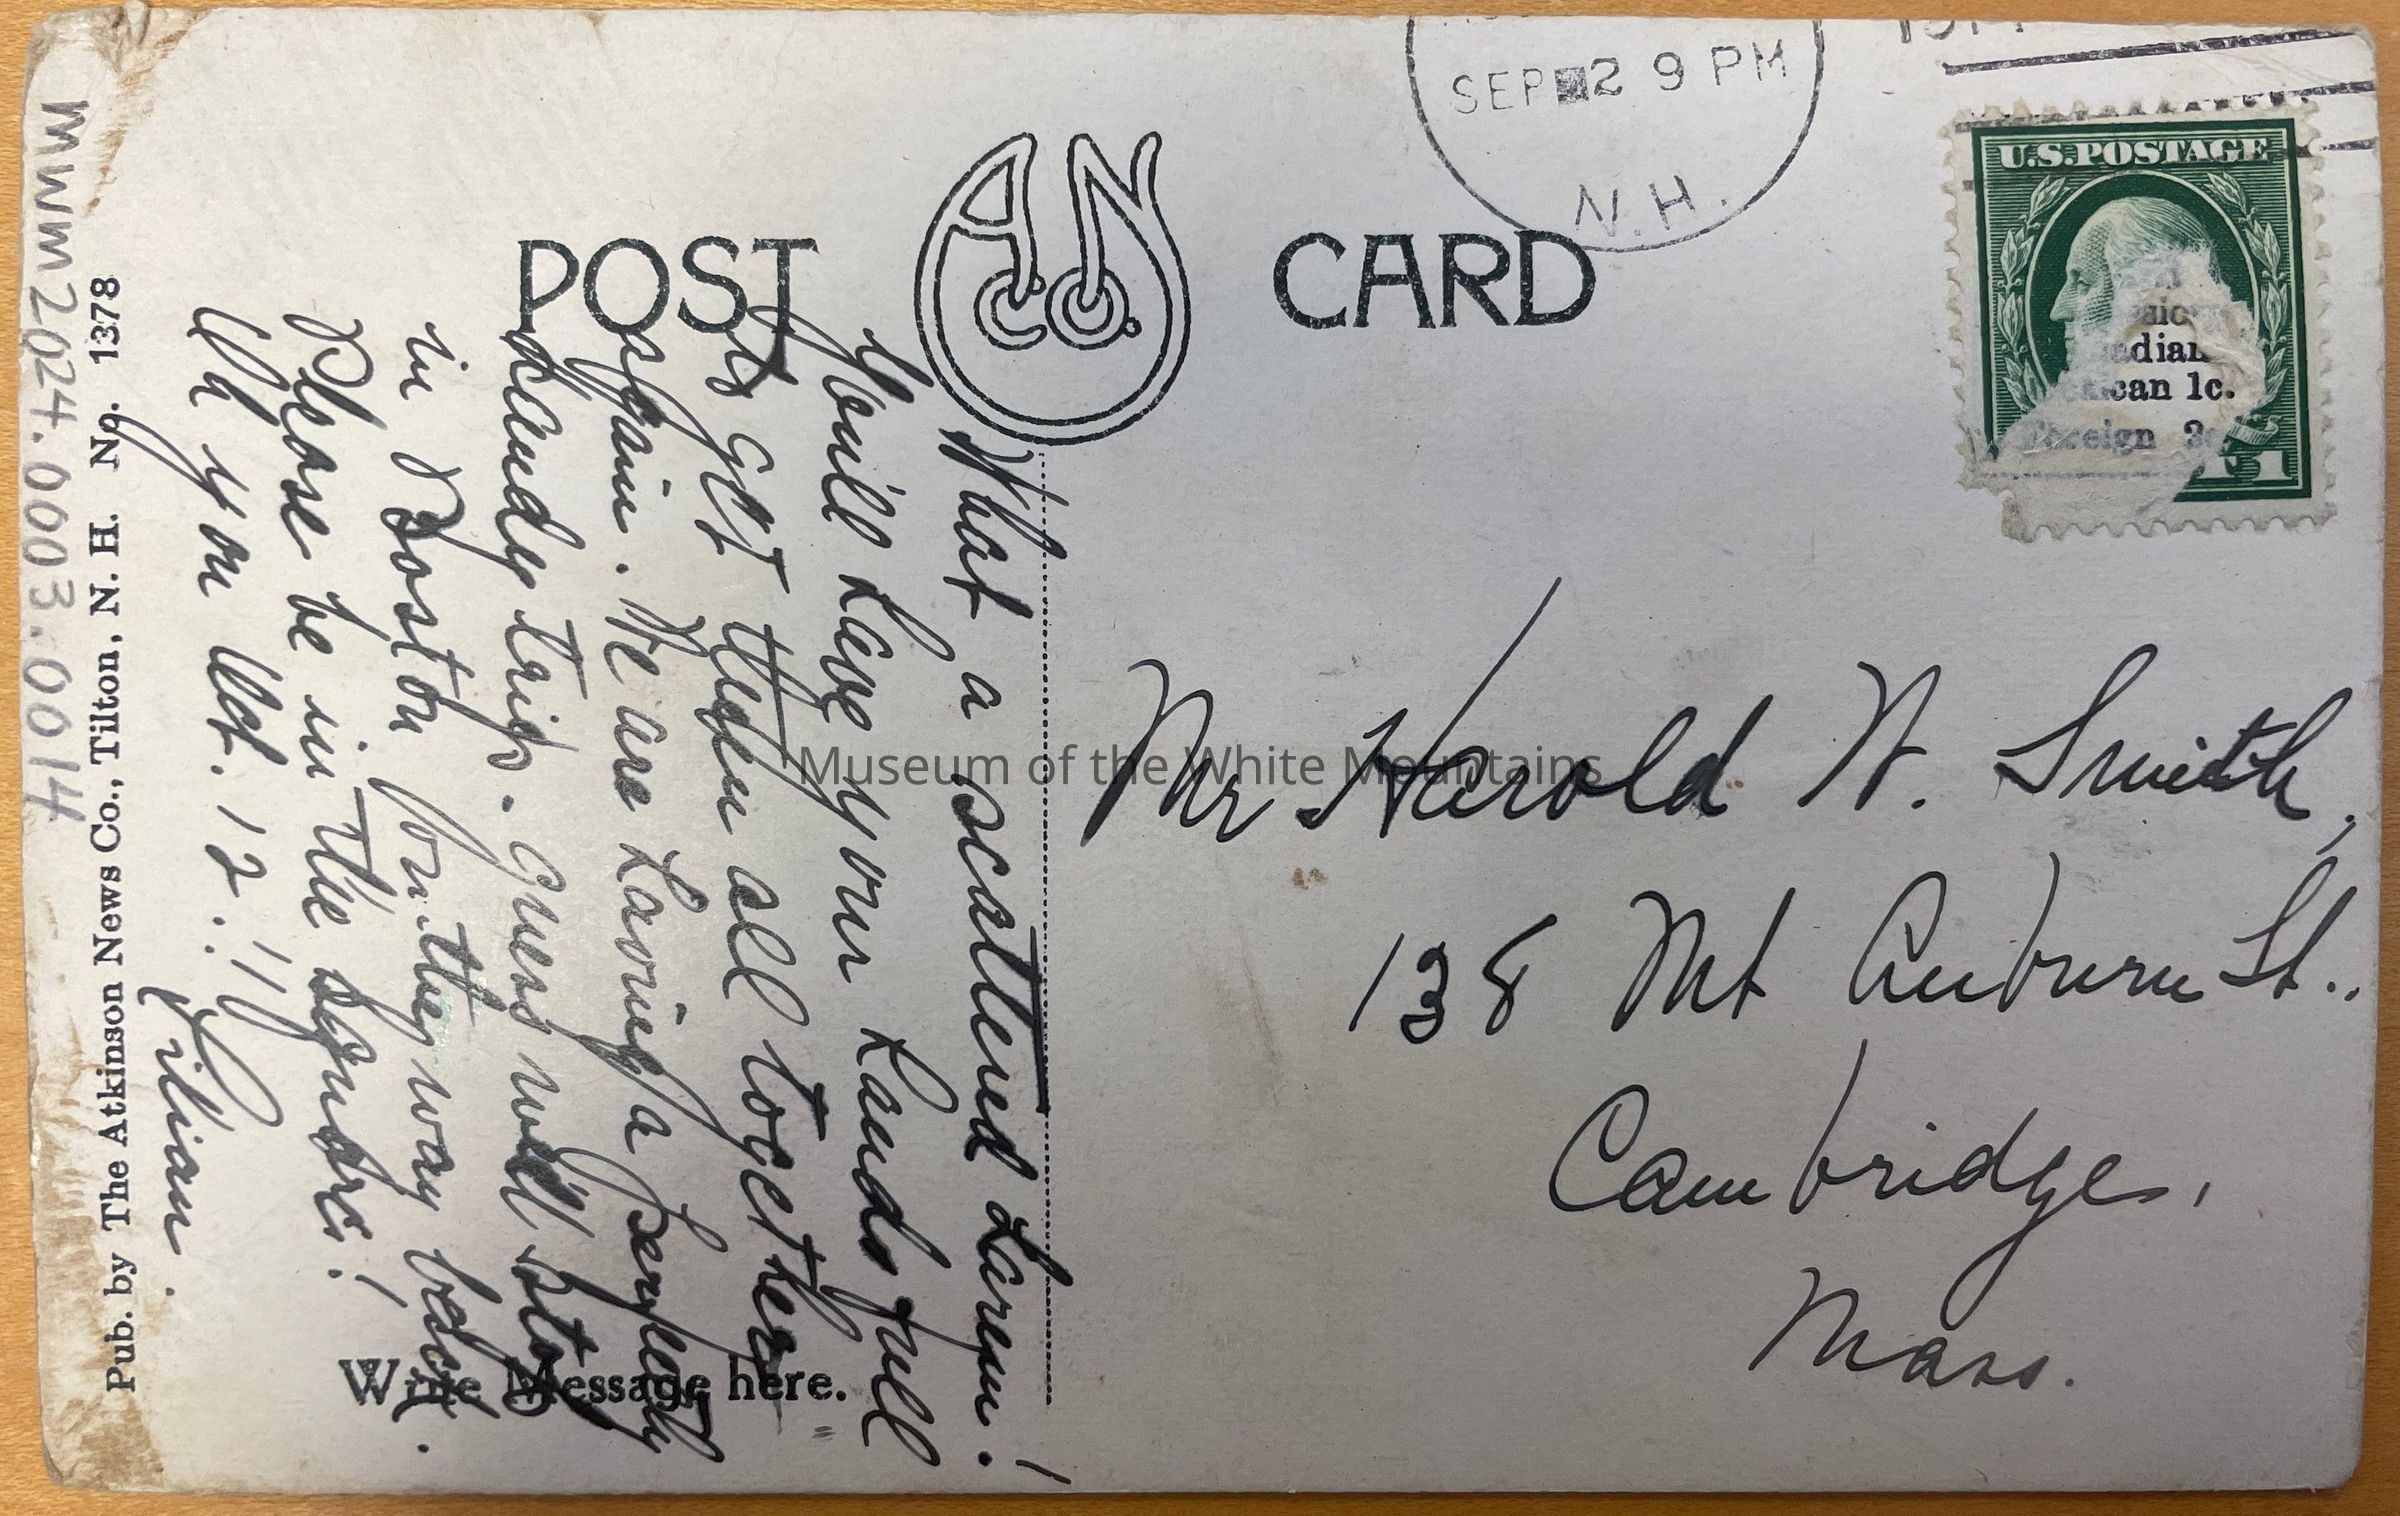 SEP 2 9 PM
N.H.
U.S. POSTAGE
can 1c.
Foreign 3c
1
POST CARD
A N Co.
What a scattered harem!
You'll have your hands full
to get them all together
again. We are having a perfectly
dandy trip. Guess we'll stay
in Boston for they way beds.
Please be in the
on Oct. 12.!!!
Lilian.
Write Message here.
Mr Harold W. Smith,
138 Mt Auburn St.,
Cambridge,
Mass.
Pub. by The Atkinson News Co., Tilton, N. H. No. 1378
MWM2024.0003.0014
Museum of the White Mountains